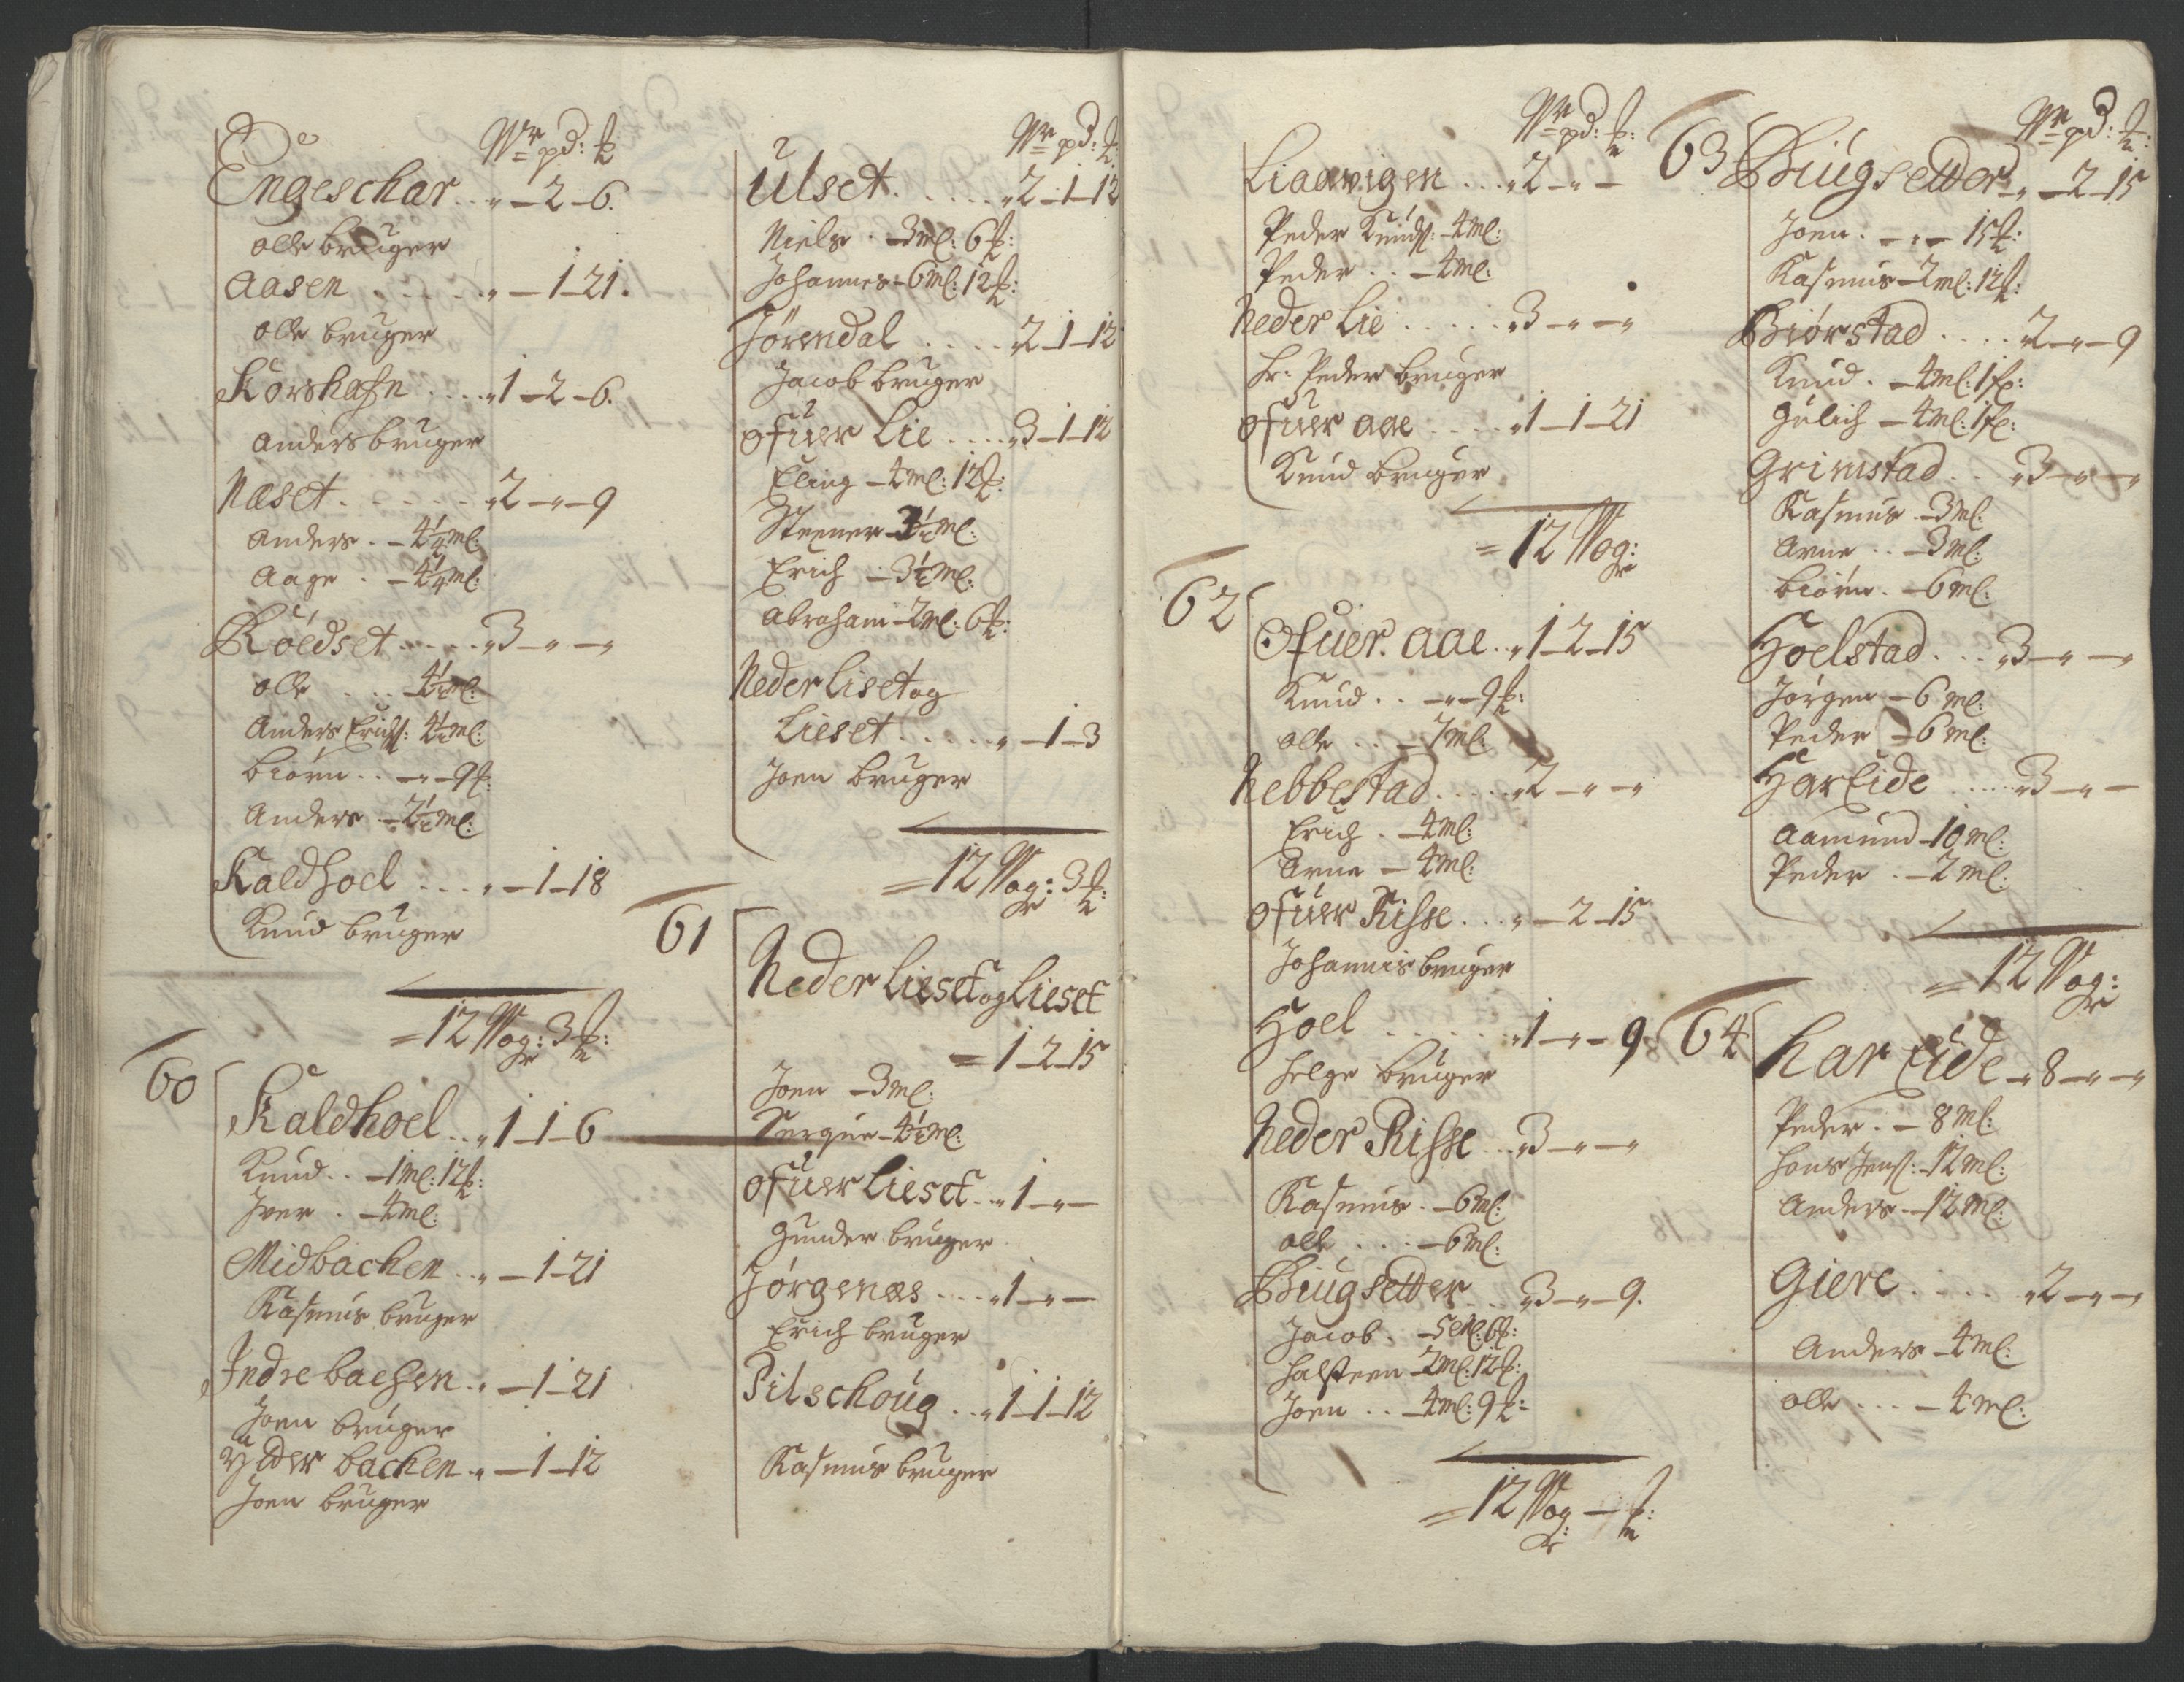 Wr pd: ℔
Engeschar . . " - 2 - 6.
olle bruger
Aasen . . . . . " - 1 - 21.
olle bruger
Korshafn . . . . 1 - 2 - 6.
Anders bruger
Næset . . . . . . 2 - " - 9
Anders . - 4½ ml:
Aage . - 4½ ml:
Röedset . . . . . 3 - " - "
olle . . . - 4½ ml:
Anders Erichs: 4½ ml:
Biörn . . - " - 9 ℔:
Anders - 2½ ml:
Kaldhoel . . . " - 1 - 18
Knud bruger
= 12 Wog: 3 ℔:
60
Kaldhoel . . 1 - 1 - 6
Knud . . - 1 ml: 12 ℔:
Iver . - 4 ml:
Midbachen . . " - 1 - 21
Rasmus bruger
Indrebachen . " - 1 - 21
Joen bruger
Ytter bachen . " - 1 - 12
Joen bruger
Wr pd: ℔:
Ulset . . . . . . 2 - 1 - 12
Niels . - 3 ml: 6 ℔:
Johannes - 6 ml: 12 ℔:
Jörendal . . . . 2 - 1 - 12
Jacob bruger
ofuer Lie . . . . 3 - 1 - 12
Eling - 4 ml: 12 ℔:
Steener - 3½ ml:
Erich - 3½ ml:
Abraham - 2 ml: 6 ℔:
Neder Liset og
Lieset . . . . . " - 1 - 3
Joen bruger
= 12 Wog: 3 ℔:
61
Neder Lieset og Lieset
= 1 - 2 - 15
Joen - 3 ml:
- 4½ ml:
ofuer Lieset . . 1 - " -
Gunder bruger
Jörgenæs . . . . 1 - " -
Erich bruger
Pilschoug . . 1 - 1 - 12
Rasmus bruger
Wr pd: ℔:
Liaavigen . . . 2 - " -
Peder Knuds: - 4 ml:
Peder . . - 4 ml:
Neder Lie . . . . . 3 - " - "
Hr: Peder bruger
ofuer aae . . . . 1 - 1 - 21
Knud bruger
= 12 Wog:
62
Ofuer. aae . . 1 - 2 - 15
Knud . . - " - 9 ℔:
olle . . - 7 ml:
Nebbestad . . . . . 2 - " - "
Erich . - 4 ml:
Arne - 4 ml:
ofuer Risse . . . " - 2 - 15
Johannis bruger
Hoel . . . . . . 1 - " - 9
Helge bruger
Neder Risse . . . 3 - " - "
Rasmus . - 6 ml:
olle . . . - 6 ml:
Biugsetter . . . 3 - " - 9.
Jacob . - 5 ml: 6 ℔:
Halsteen - 2 ml: 12 ℔:
Joen . . - 4 ml: 9 ℔:
= 12 Wog - ℔:
Wr pd: ℔:
63
Biugsetter - " - 2 - 15
Joen . - " - 15 ℔:
Rasmus - 2 ml: 12 ℔:
Biörstad . . . . 2 - " - 9
Knud . - 4 ml: 1 ℔:
Gulich - 4 ml: 1 ℔:
Grimstad . . . 3 - " - "
Rasmus - 3 ml:
Arne . . - 3 ml:
Biörn . - 6 ml:
Hoelstad . . . 3 - " - "
Jörgen - 6 ml:
Peder - 6 ml:
Har Eide . . . . . 3 - " -
Aamund - 10 ml:
Peder . - 2 ml:
= 12 Wog:
64
Har Eide - 8 - " - "
Peder . - 8 ml:
Hans Jens: - 12 ml:
Anders - 12 ml:
Giere . . . . . 2 - " - "
Anders - 4 ml:
olle . . . - 4 ml: